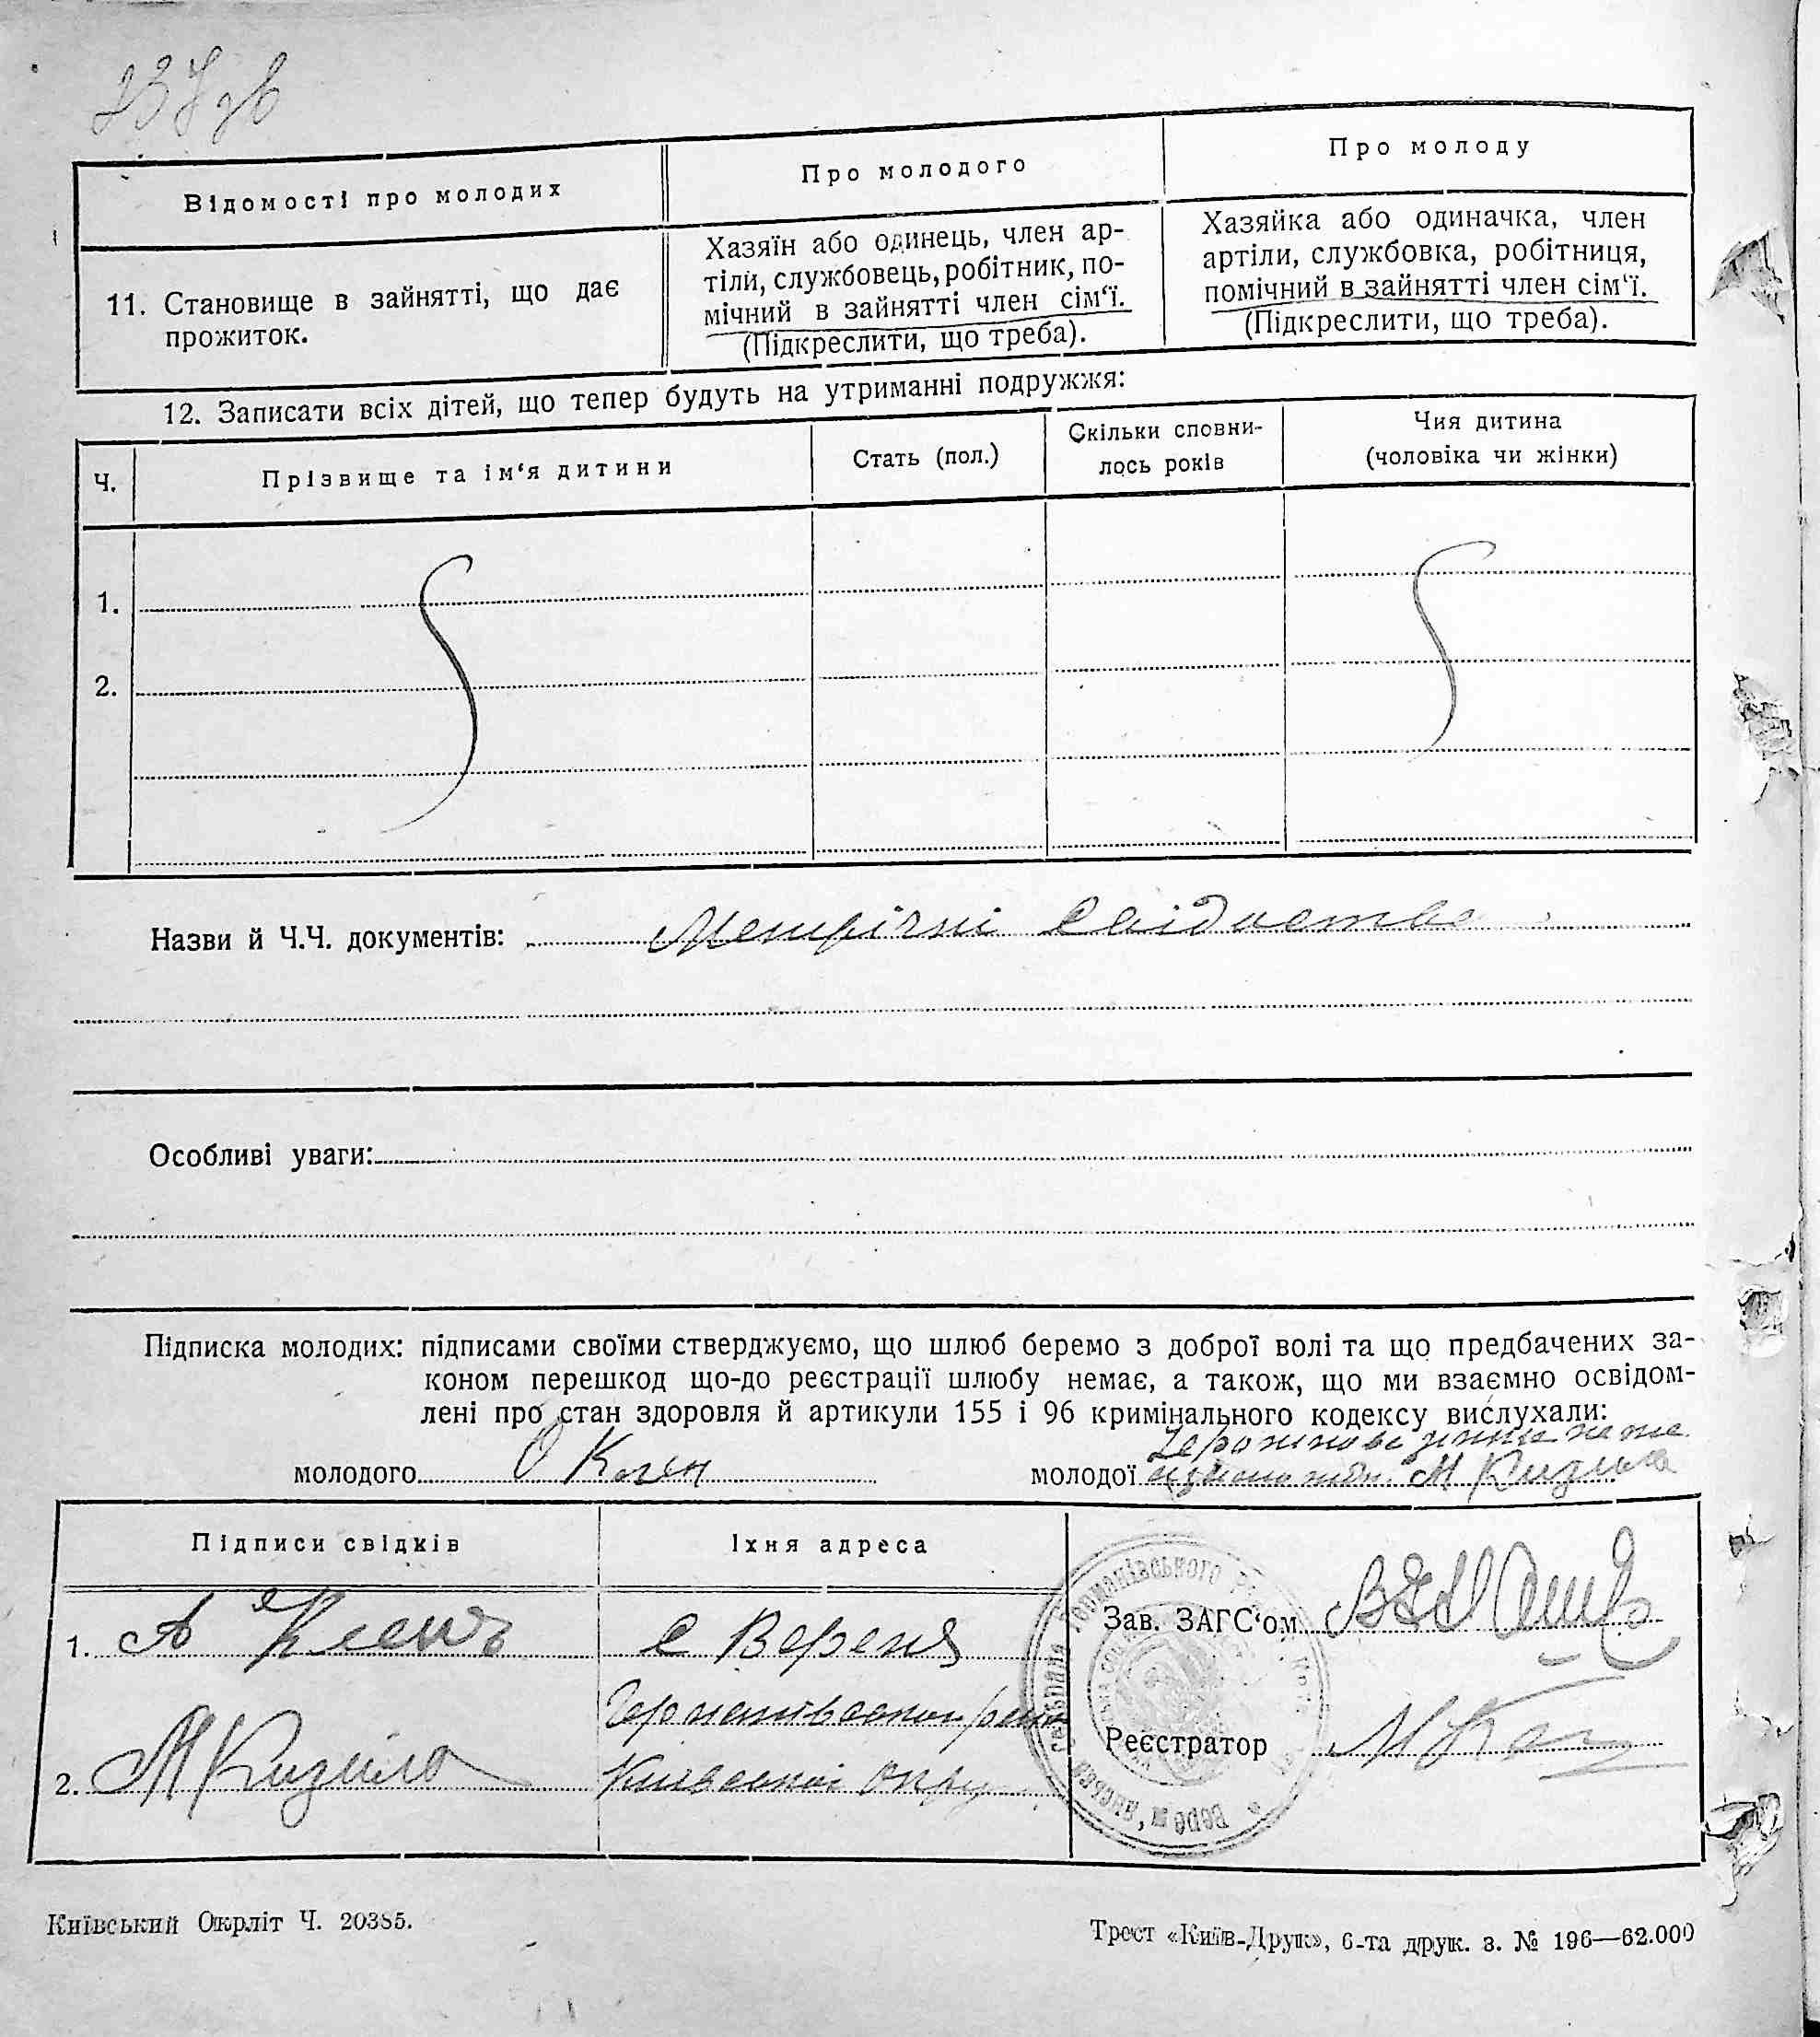 237 зв
Відомості про молодих
Про молодого
Про молоду
11. Становище в зайнятті, що дає
прожиток.
Хазяїн або одинець, член ар-
тіли, службовець, робітник, по-
мічний в зайнятті член сім‘ї.
(Підкреслити, що треба).
Хазяйка або одиначка, член
артіли, службовка, робітниця,
помічний в зайнятті член сім‘ї.
(Підкреслити, що треба).
12. Записати всіх дітей, що тепер будуть на утриманні подружжя:
Ч.
Прізвище та ім‘я дитини
Стать (пол.)
Скільки сповни-
лось років
Чия дитина
(чоловіка чи жінки)
1.
2.
Назви й Ч.Ч. документів: Метричні
Особливі уваги:
Підписка молодих: підписами своїми стверджуємо, що шлюб беремо з доброї волі та що предбачених за-
коном перешкод що-до реєстрації шлюбу немає, а також, що ми взаємно освідом-
лені про стан здоровля й артикули 155 і 96 кримінального кодексу вислухали:
молодого О Клен
молодої М
Підписи свідків
Їхня адреса
1. А Клен
с
Зав. ЗАГС‘ом
2. М
Київської Окру
Реєстратор
Київський Окрліт Ч. 20385.
Трест «Київ-Друк», 6-та друк. з. № 196—62.000